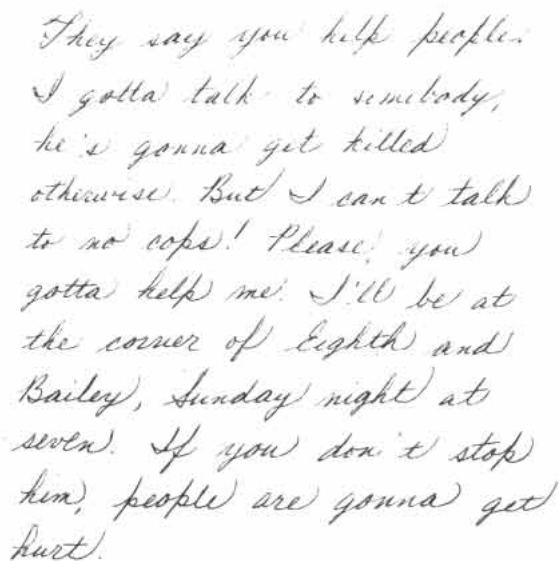 They say you help people.
I gotta talk to somebody,
he's gonna get killed
otherwise. But I can't talk
to no cops! Please, you
gotta help me. I'll be at
the corner of Eighth and
Bailey, Sunday night at
seven. If you don't stop
him, people are gonna get
hurt.